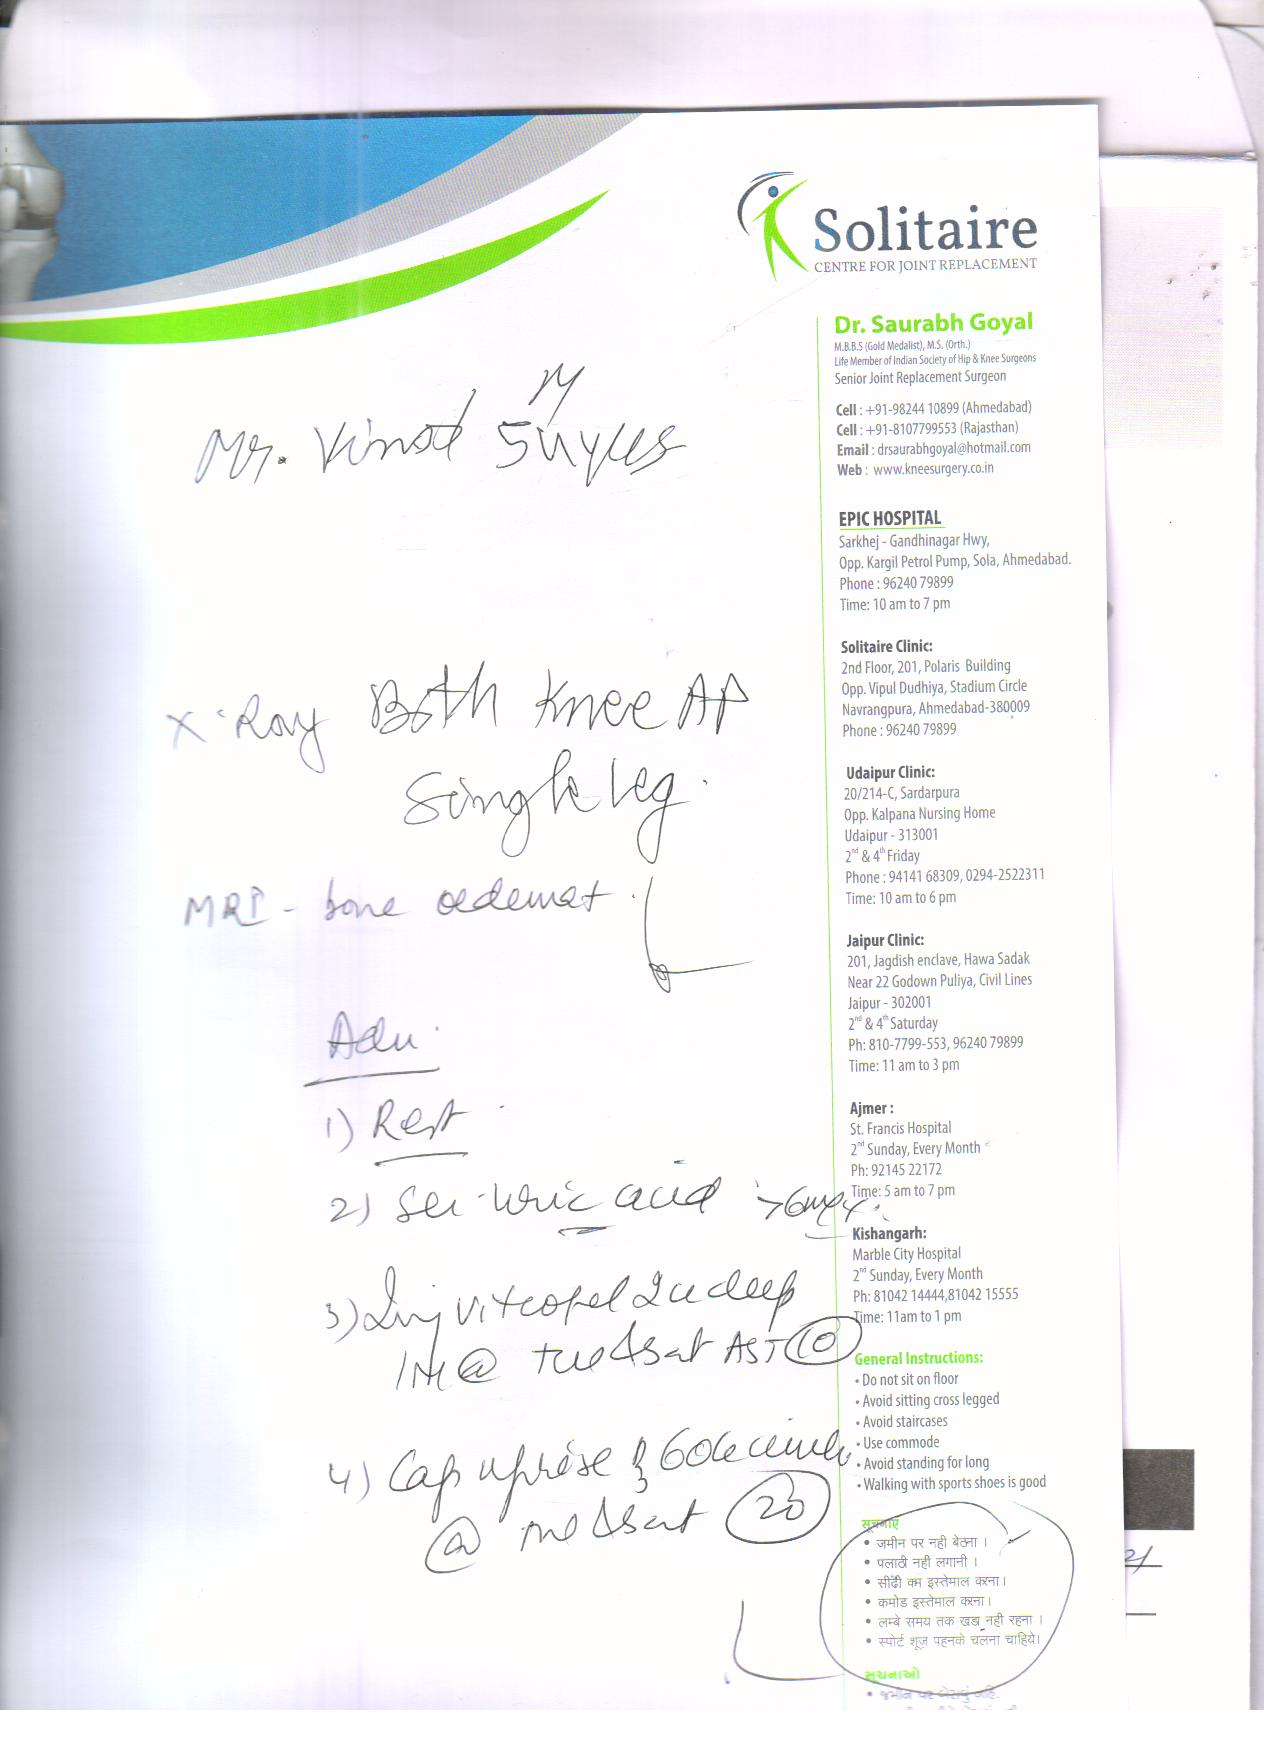 Solitaire
CENTRE FOR JOINT REPLACEMENT
Dr. Saurabh Goyal
M.B.B.S (Gold Medalist), M.S. (Orth.)
Life Member of Indian Society of Hip & Knee Surgeons
Senior Joint Replacement Surgeon
Cell : +91-98244 10899 (Ahmedabad)
Cell : +91-8107799553 (Rajasthan)
Email : drsaurabhgoyal@hotmail.com
Web : www.kneesurgery.co.in
EPIC HOSPITAL
Sarkhej - Gandhinagar Hwy,
Opp. Kargil Petrol Pump, Sola, Ahmedabad.
Phone : 96240 79899
Time: 10 am to 7 pm
Solitaire Clinic:
2nd Floor, 201, Polaris Building
Opp. Vipul Dudhiya, Stadium Circle
Navrangpura, Ahmedabad-380009
Phone : 96240 79899
Udaipur Clinic:
20/214-C, Sardarpura
Opp. Kalpana Nursing Home
Udaipur - 313001
2nd & 4th Friday
Phone : 94141 68309, 0294-2522311
Time: 10 am to 6 pm
Jaipur Clinic:
201, Jagdish enclave, Hawa Sadak
Near 22 Godown Puliya, Civil Lines
Jaipur - 302001
2nd & 4th Saturday
Ph: 810-7799-553, 96240 79899
Time: 11 am to 3 pm
Ajmer :
St. Francis Hospital
2nd Sunday, Every Month
Ph: 92145 22172
Time: 5 am to 7 pm
Kishangarh:
Marble City Hospital
2nd Sunday, Every Month
Ph: 81042 14444,81042 15555
Time: 11am to 1 pm
General Instructions:
• Do not sit on floor
• Avoid sitting cross legged
• Avoid staircases
• Use commode
• Avoid standing for long
• Walking with sports shoes is good
सूचनाएं
• जमीन पर नही बेठना ।
• पलाठी नही लगानी ।
• सीढी कम इस्तेमाल करना।
• कमोड इस्तेमाल करना।
• लम्बे समय तक खडा नही रहना ।
• स्पोर्ट शूज पहनके चलना चाहिये।
સૂચનાઓ
Mr. Vinod
M
X-Ray Both Knee AP
Single leg.
MRI - bone oedema
Adv.
1) Rest
2) Ser. uric acid
3) Inj
IM @ AST 10
4) Cap uprise
@ 20